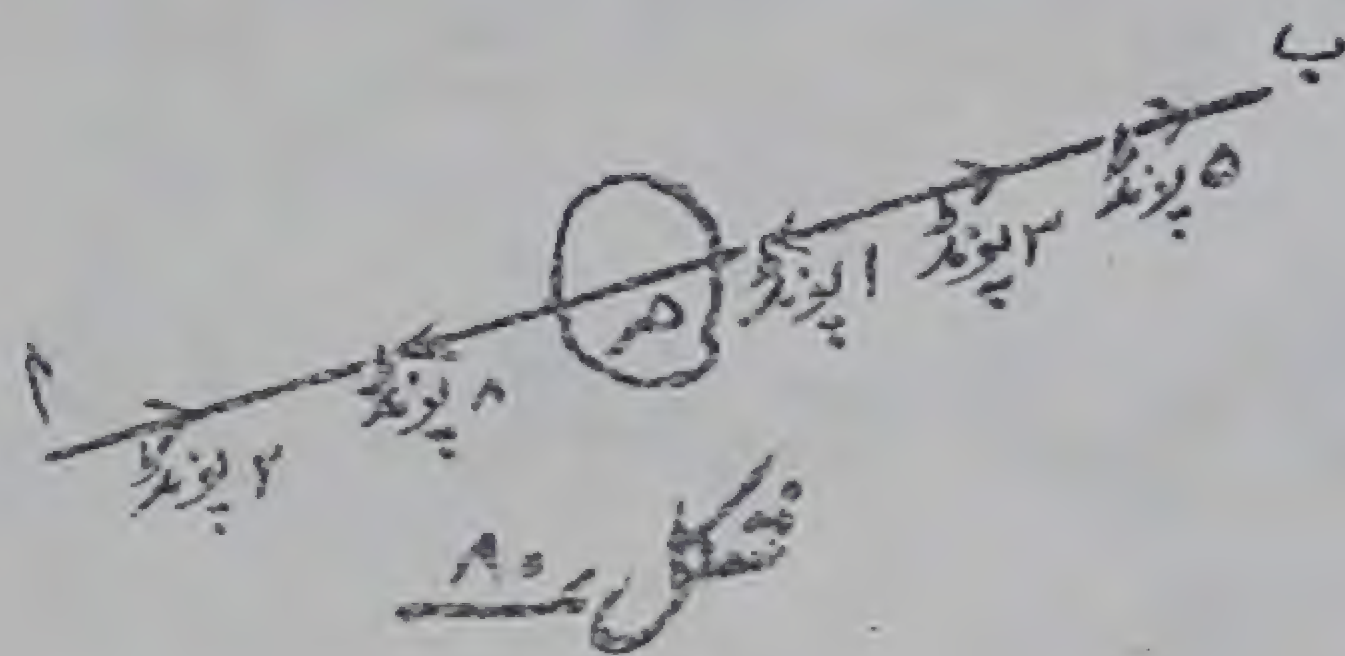 ب
۵ پونڈ
۳ پونڈ
۱ پونڈ
م
۸ پونڈ
۲ پونڈ
شکل ۸۵